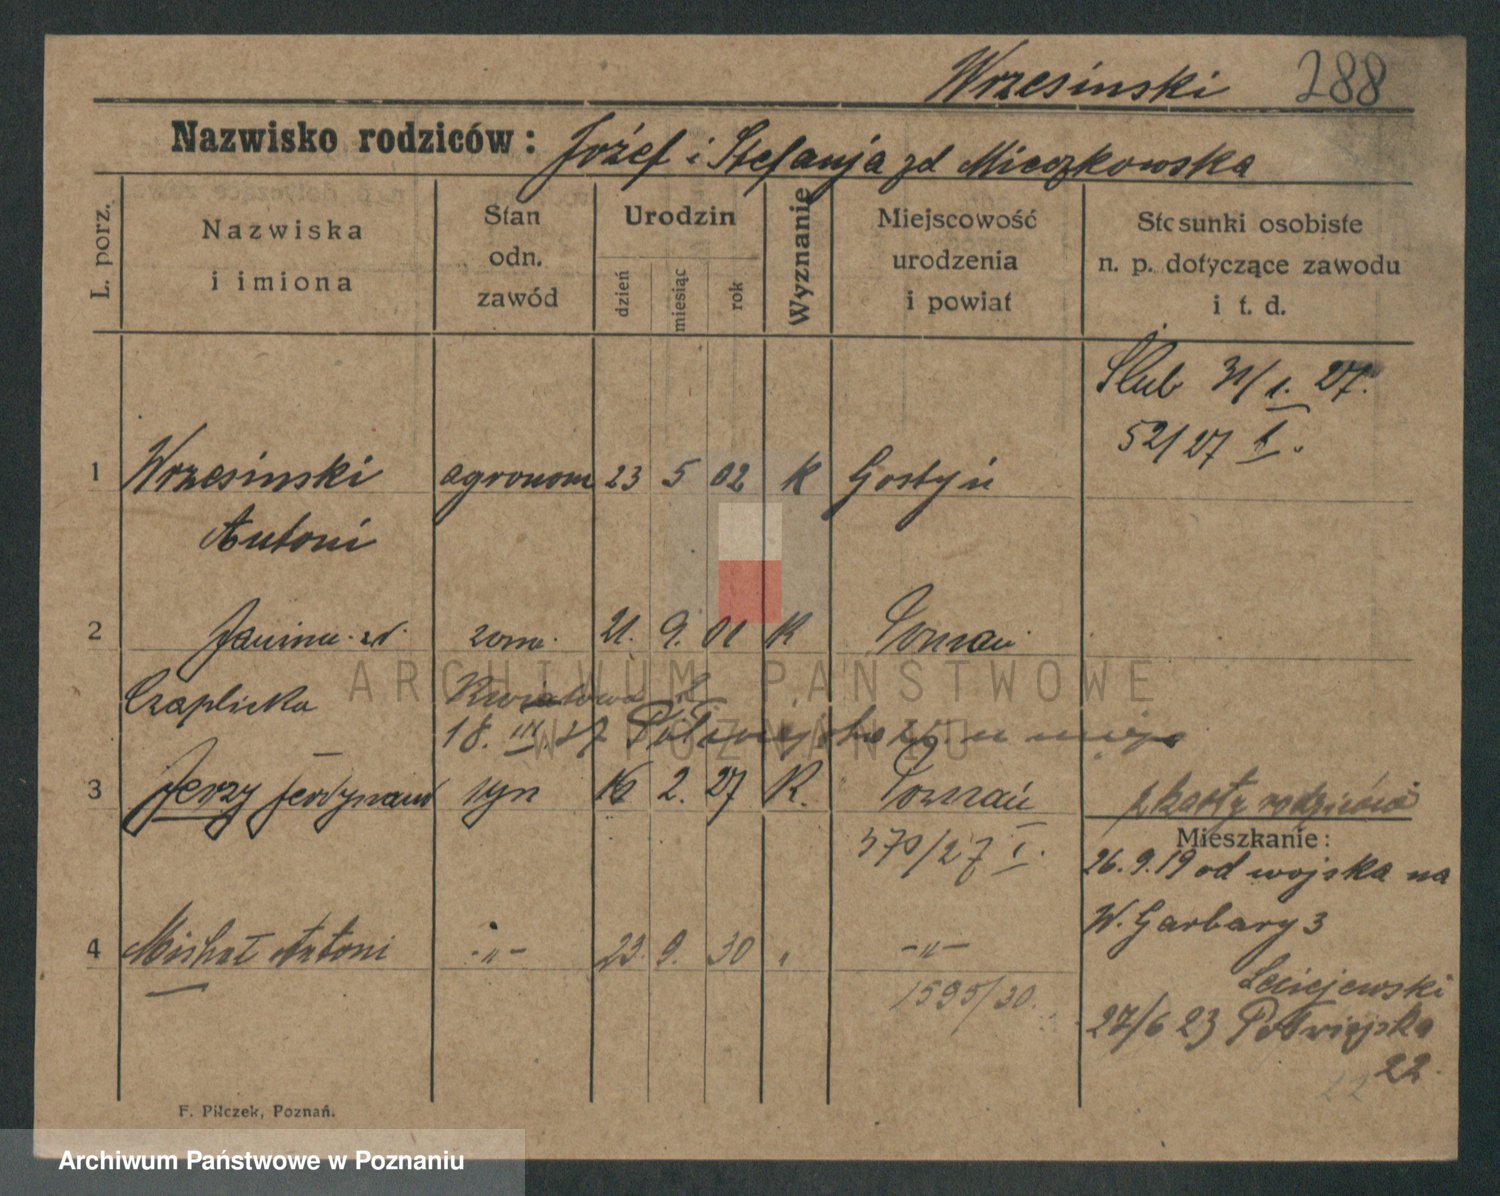 Wrzesinski 288
Nazwisko rodziców: Józef i Stefanja zd Mieczkowska
L. porz.
Nazwiska
i imiona
Stan
odn.
zawód
Urodzin
dzień
miesiąc
rok
Wyznanie
Miejscowość
urodzenia
i powiat
Stosunki osobiste
n. p. dotyczące zawodu
i t. d.
Ślub 31/1. 27.
52/27 I.
1 Wrzesinski agronom 23 5 02 K Gostyń
Antoni
2 Janina zd. żona 21. 9. 01 K Poznań
Czaplicka Kwiatowa
18. III 27 Półwiejska
3 Jerzy Ferdynand syn 16 2. 27 K. Poznań z karty rodziców
370/27 I.
Mieszkanie:
26.9.19 od wojska na
W. Garbary 3
4 Michał Antoni -„- 23. 9. 30 „ -„-
1595/30.
Leciejewski
27/6 23 Półwiejska
22
F. Pilczek, Poznań.
ARCHIWUM PAŃSTWOWE
W POZNANIU
Archiwum Państwowe w Poznaniu